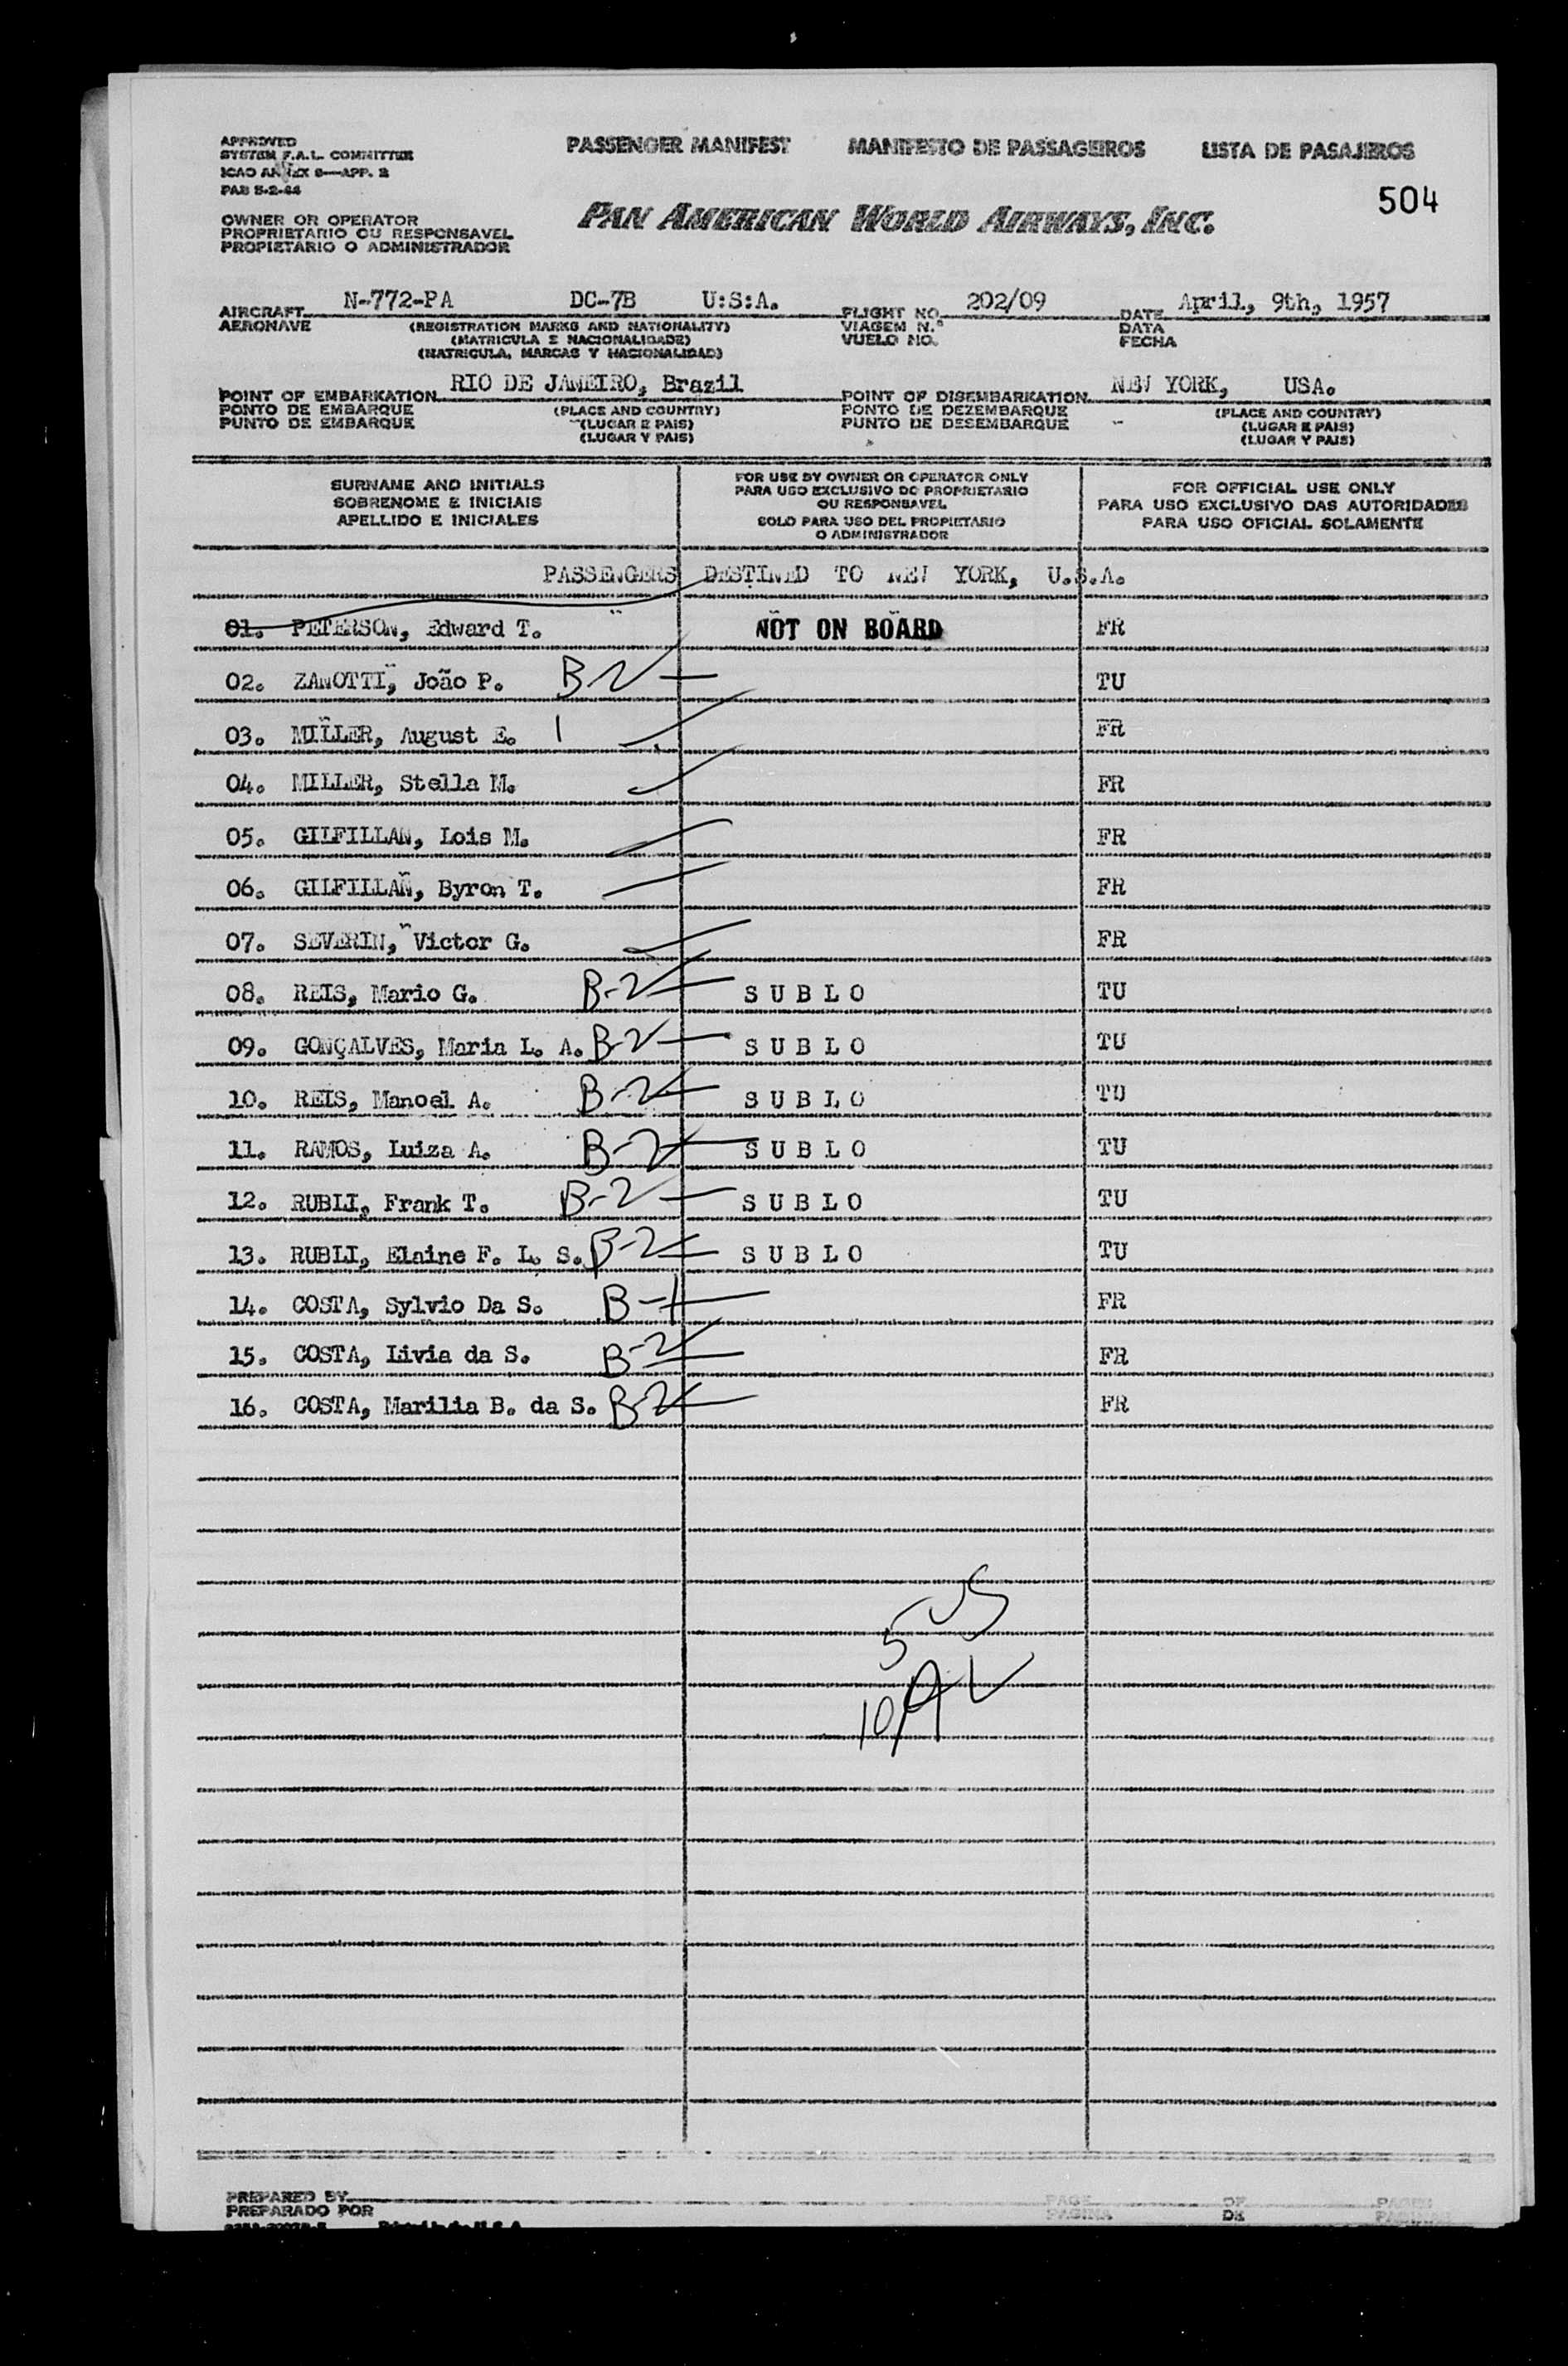 APPROVED
SYSTEM F.A.L. COMMITTEE
ICAO ANNEX 9—APP. 2
PAB 5-2-44
PASSENGER MANIFEST MANIFESTO DE PASSAGEIROS LISTA DE PASAJEROS
504
OWNER OR OPERATOR
PROPRIETARIO OU RESPONSAVEL
PROPIETARIO O ADMINISTRADOR
PAN AMERICAN WORLD AIRWAYS, INC.
AIRCRAFT N-772-PA DC-7B U:S:A. FLIGHT NO. 202/09 DATE April, 9th, 1957
AERONAVE (REGISTRATION MARKS AND NATIONALITY) VIAGEM N.º DATA
(MATRICULA E NACIONALIDADE) VUELO NO. FECHA
(MATRICULA, MARCAS Y NACIONALIDAD)
POINT OF EMBARKATION RIO DE JANEIRO, Brazil POINT OF DISEMBARKATION NEW YORK, USA.
PONTO DE EMBARQUE (PLACE AND COUNTRY) PONTO DE DEZEMBARQUE (PLACE AND COUNTRY)
PUNTO DE EMBARQUE (LUGAR E PAIS) PUNTO DE DESEMBARQUE (LUGAR E PAIS)
(LUGAR Y PAIS) (LUGAR Y PAIS)
SURNAME AND INITIALS
SOBRENOME E INICIAIS
APELLIDO E INICIALES
FOR USE BY OWNER OR OPERATOR ONLY
PARA USO EXCLUSIVO DO PROPRIETARIO
OU RESPONSAVEL
SOLO PARA USO DEL PROPIETARIO
O ADMINISTRADOR
FOR OFFICIAL USE ONLY
PARA USO EXCLUSIVO DAS AUTORIDADES
PARA USO OFICIAL SOLAMENTE
PASSENGERS DESTINED TO NEW YORK, U.S.A.
01. PETERSON, Edward T. NOT ON BOARD FR
02. ZANOTTI, João P. B-2 TU
03. MILLER, August E. 1 FR
04. MILLER, Stella M. FR
05. GILFILLAN, Lois M. FR
06. GILFILLAN, Byron T. FR
07. SEVERIN, Victor G. FR
08. REIS, Mario G. B-2 S U B L O TU
09. GONÇALVES, Maria L. A. B-2 S U B L O TU
10. REIS, Manoel A. B-2 S U B L O TU
11. RAMOS, Luiza A. B-2 S U B L O TU
12. RUBLI, Frank T. B-2 S U B L O TU
13. RUBLI, Elaine F. L. S. B-2 S U B L O TU
14. COSTA, Sylvio Da S. B-1 FR
15. COSTA, Livia da S. B-2 FR
16. COSTA, Marilia B. da S. B-2 FR
5 US
10 A
PREPARED BY PAGE OF PAGES
PREPARADO POR PAGINA DE PAGINAS